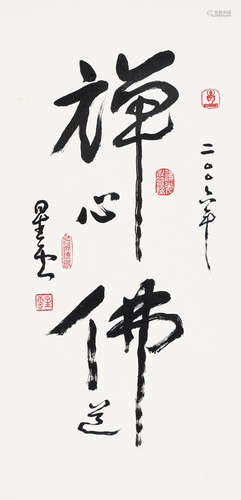 二〇〇六年
禪心
佛道
星雲